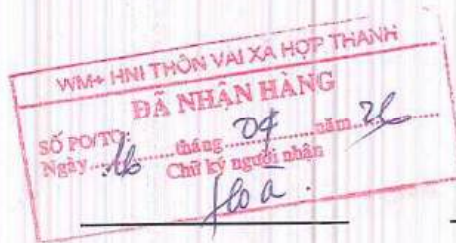 WM+ HNI THÔN VAI XA HỢP THANH
ĐÃ NHẬN HÀNG
SỐ PO/TO:
Ngày 16 tháng 04 năm
Chữ ký người nhận
Hoà.